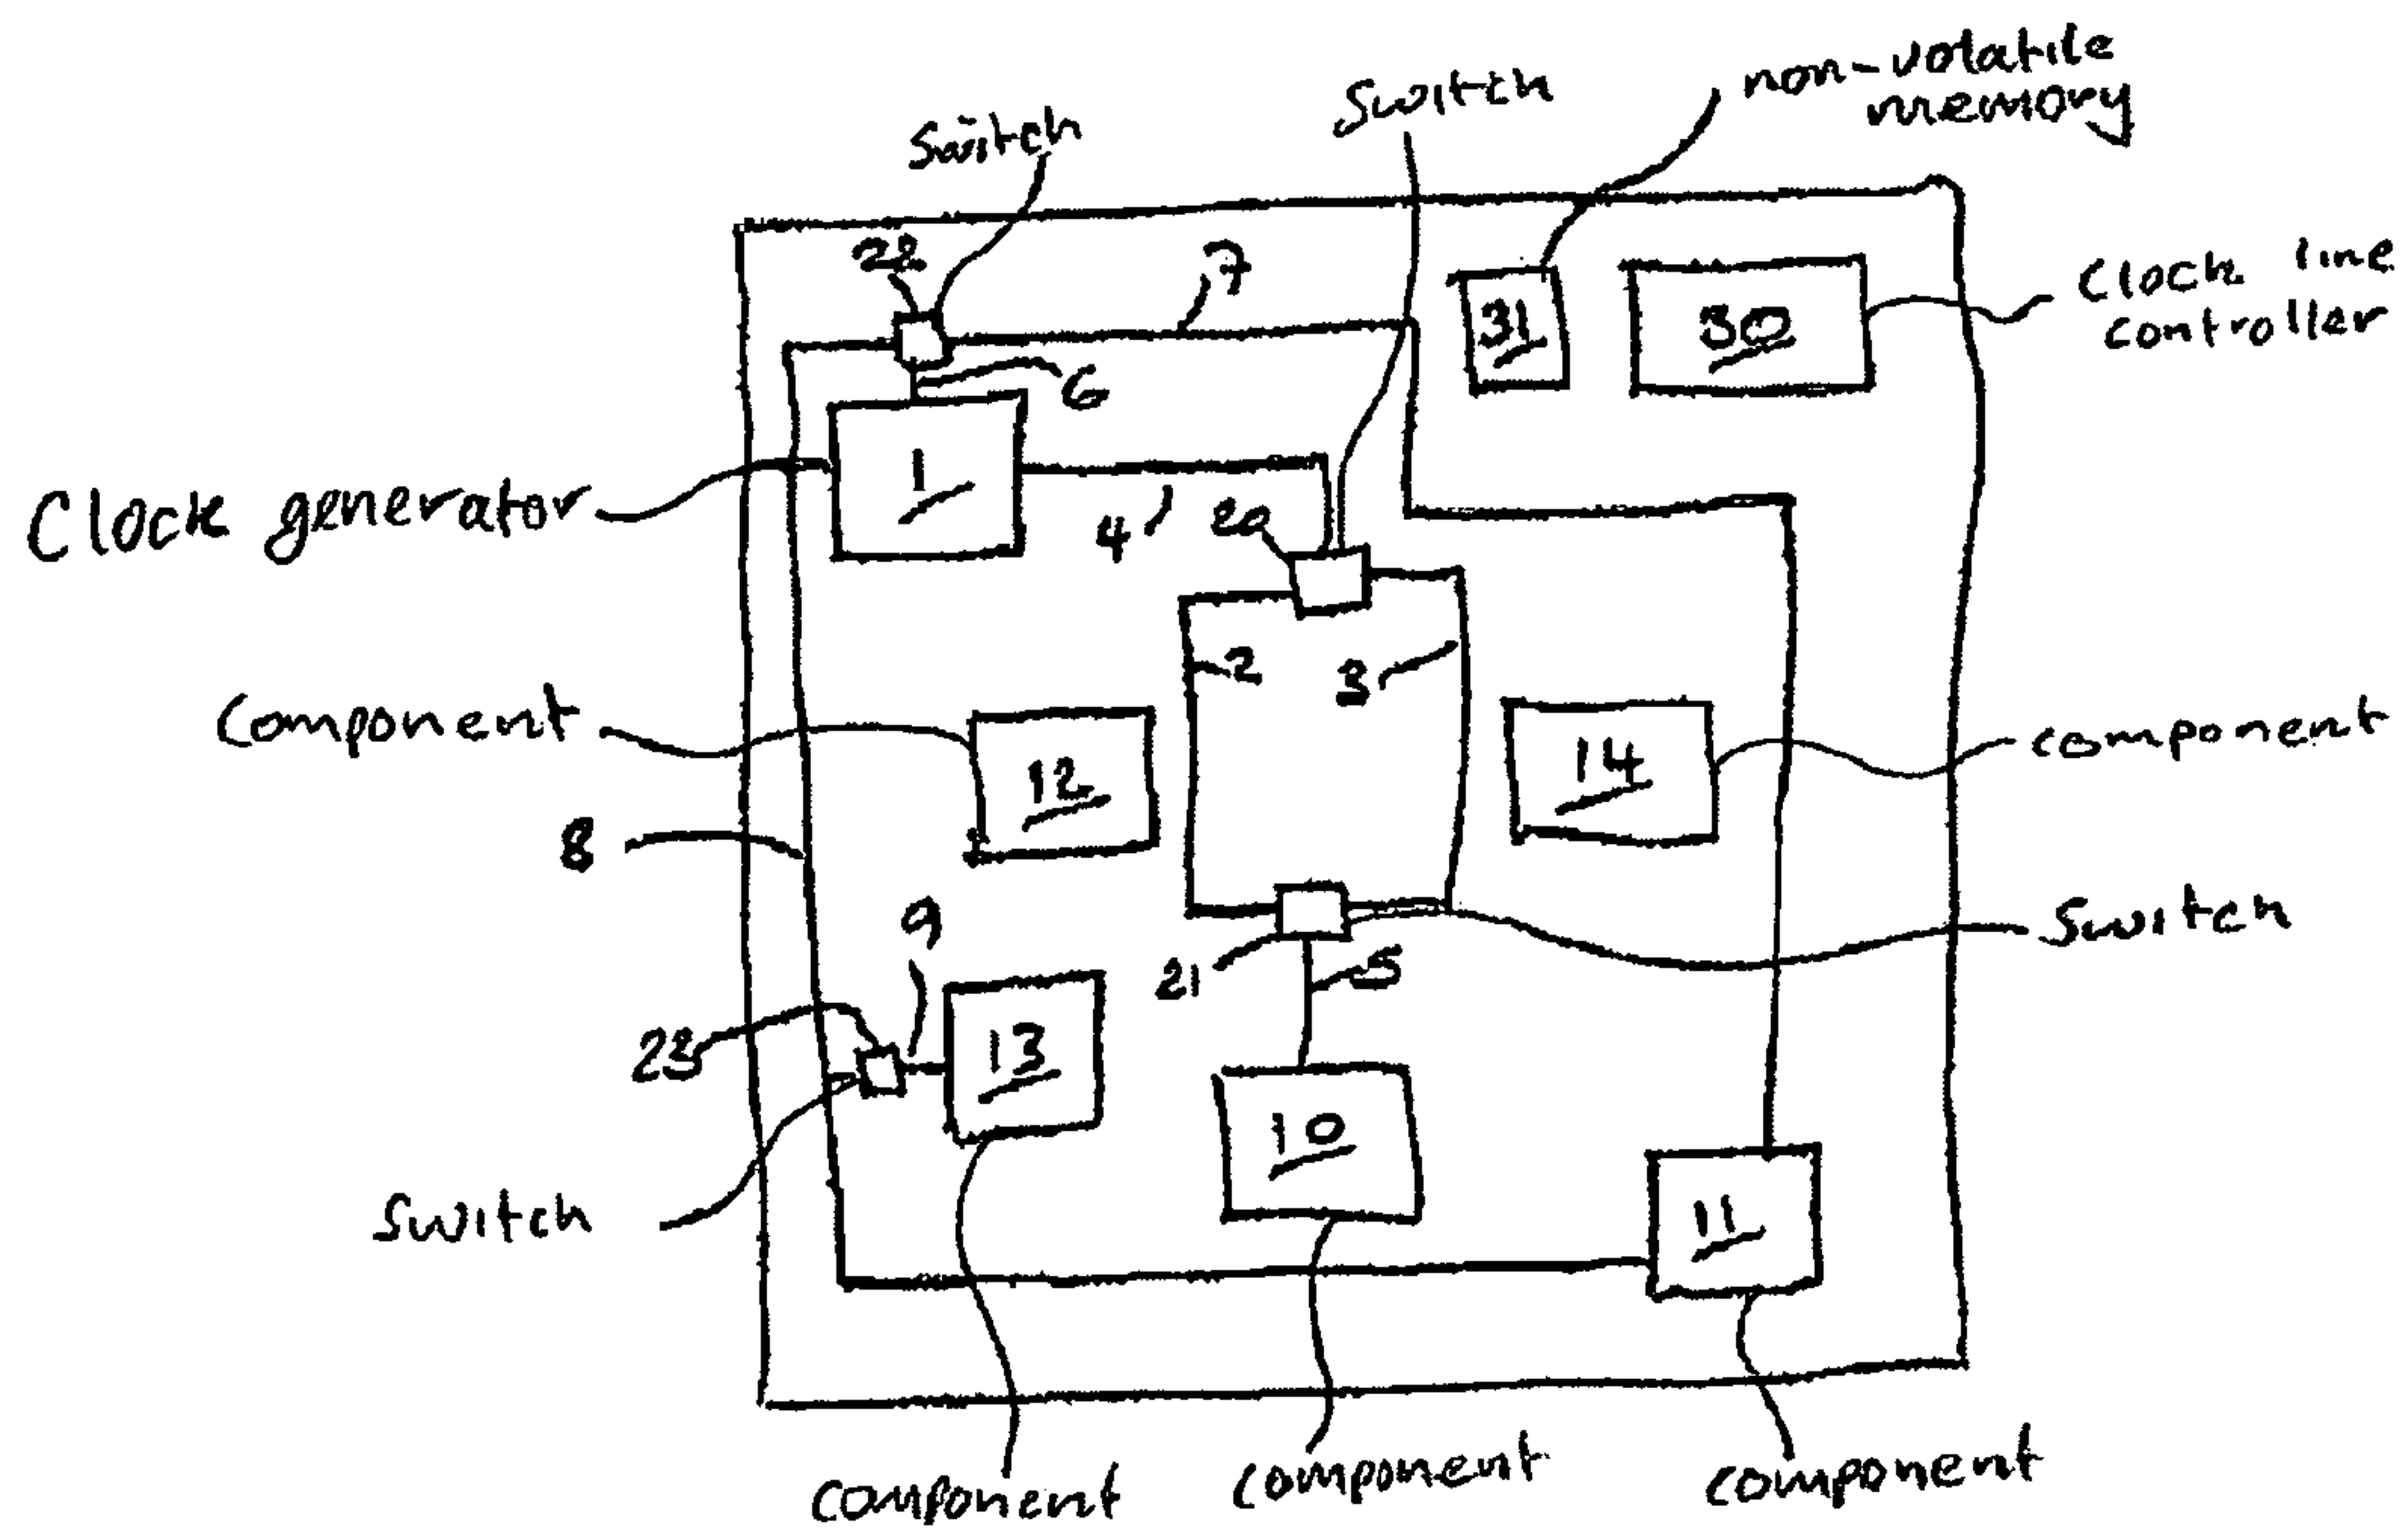 switch
switch
non-volatile
memory
22
7
31
30
Clock line
controller
6
1
Clock generator
4
20
2
3
Component
12
14
component
8
9
21
5
Switch
23
13
10
11
Switch
component
component
component